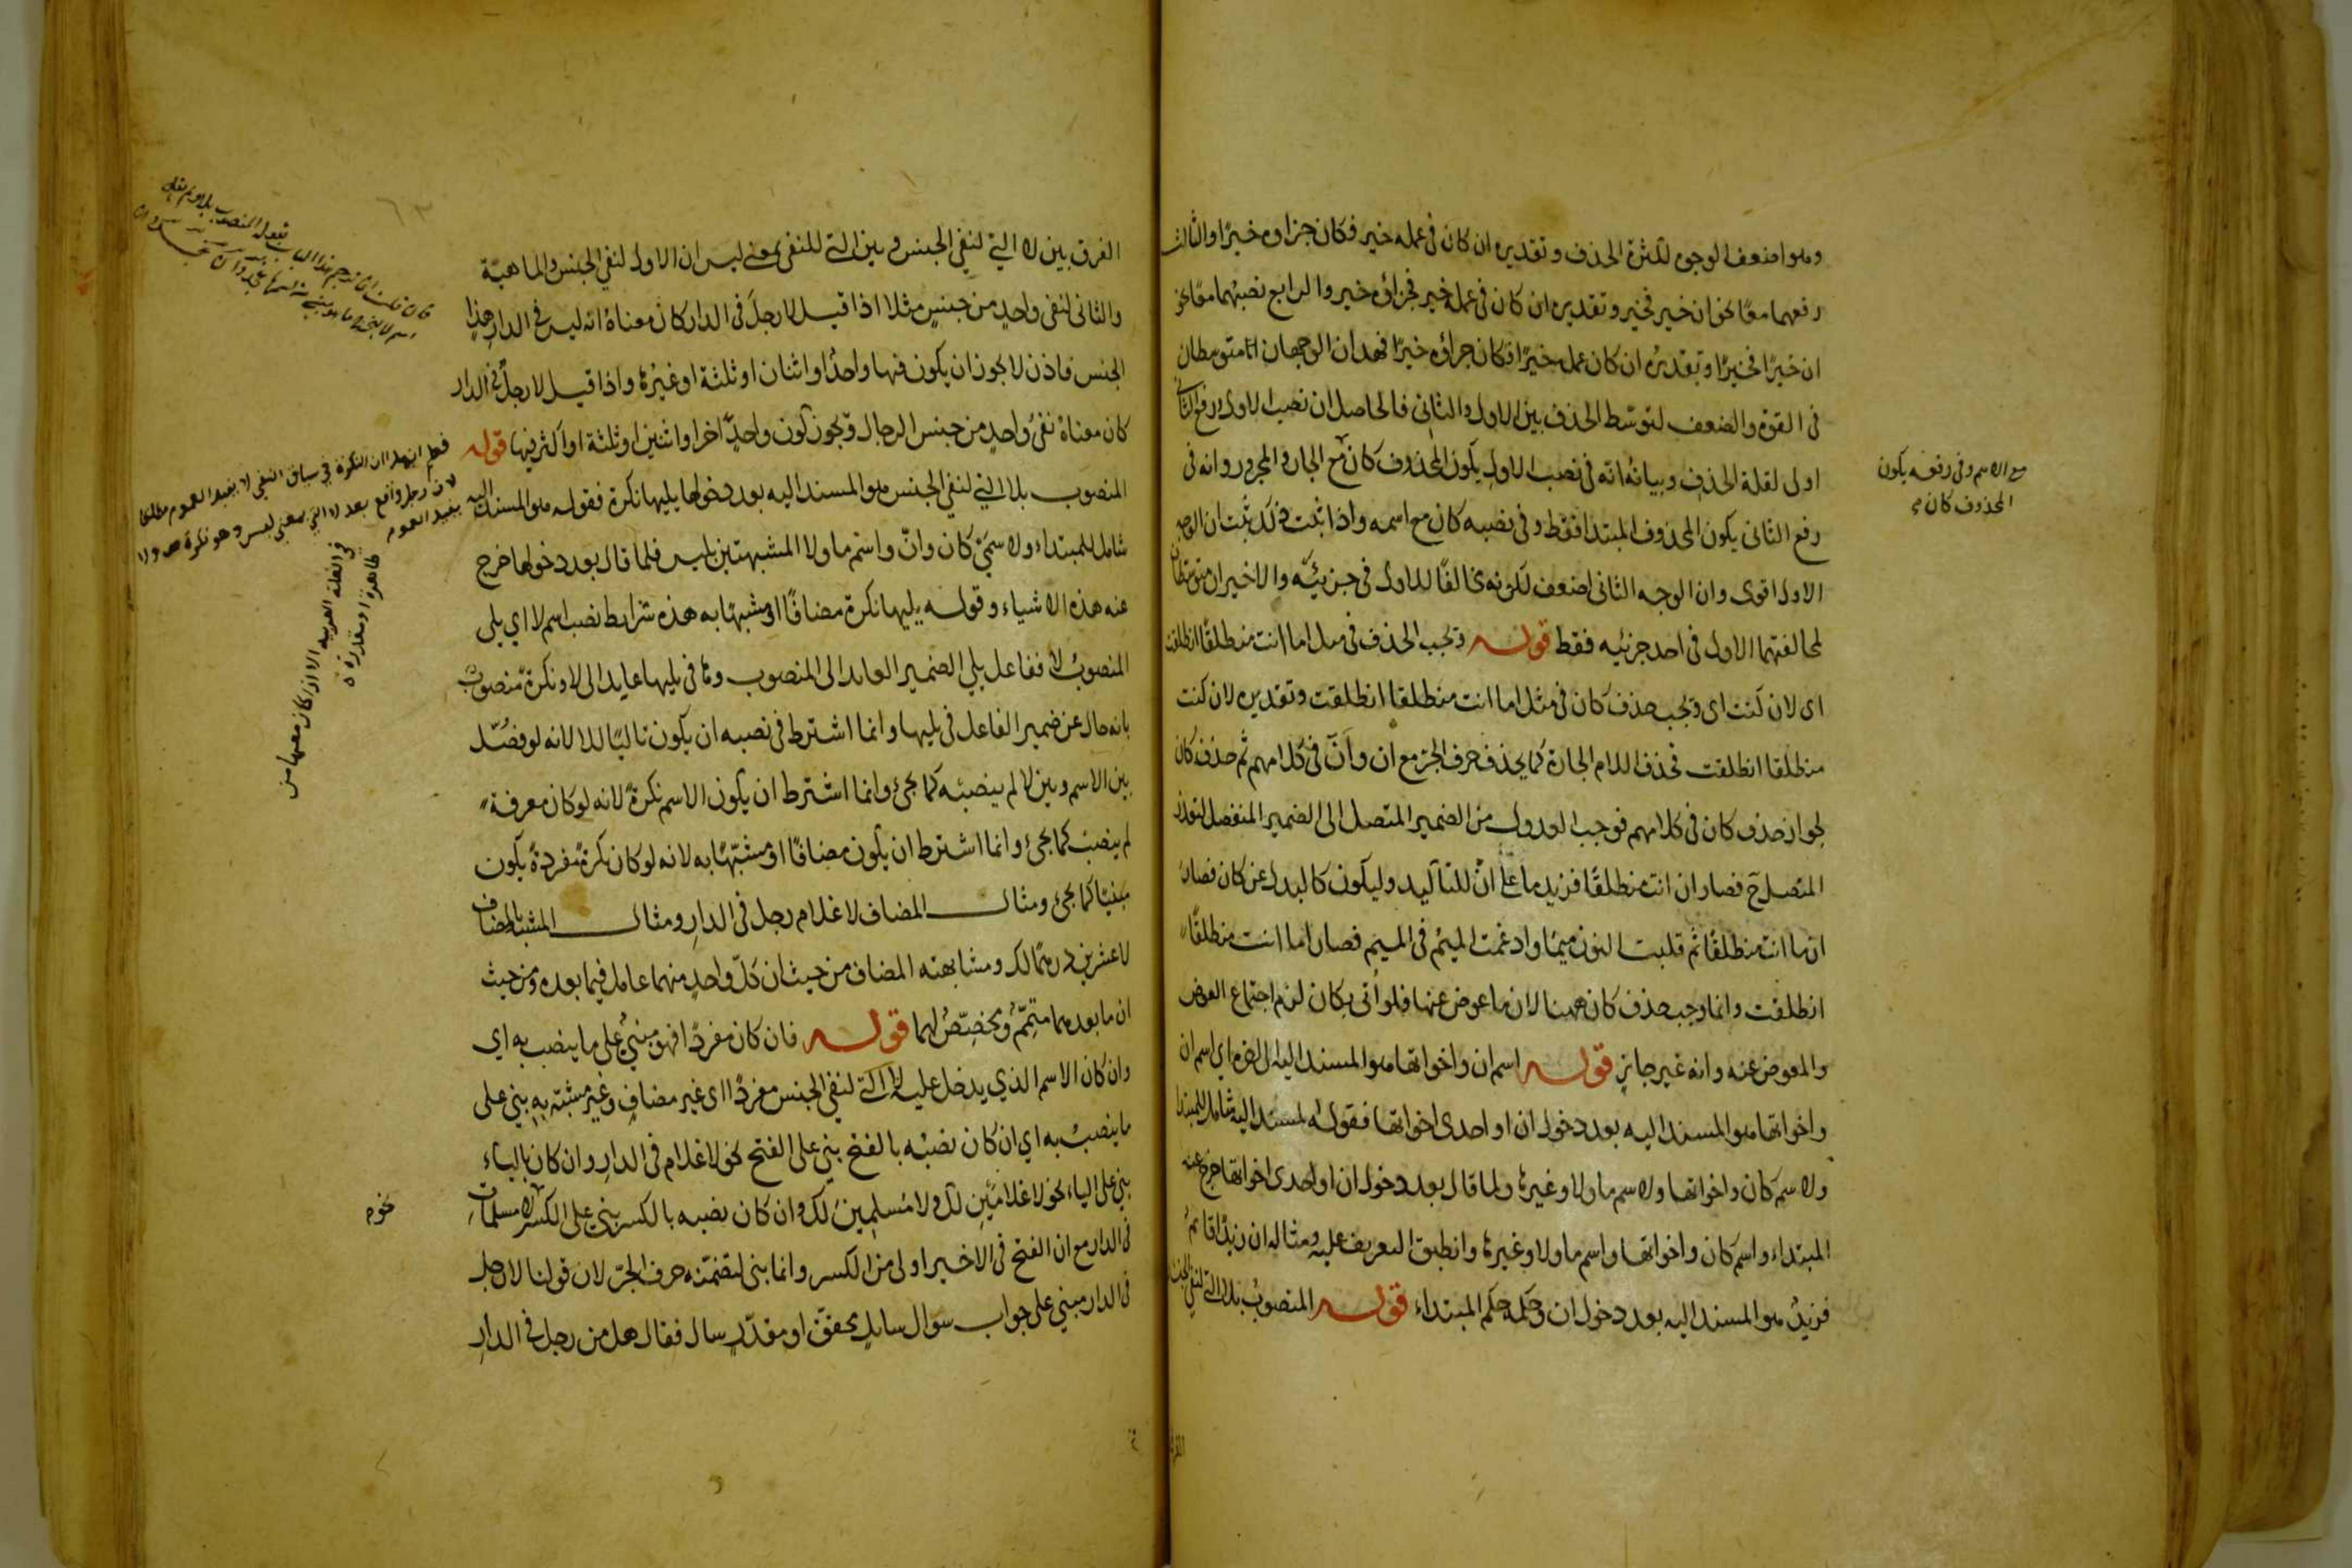 وهو اضعف الوجوه لكثرة الحذف وتقديره ان كان فى عمله خير فكان جزاوه خيرًا والثالث
رفعهما معًا نحو ان خير فخير وتقديره ان كان فى عمله خير فجزاؤه خير والرابع نصبهما معًا نحو
ان خيرًا فخيرًا وتقديره ان كان عمله خيرًا فكان جزاؤه خيرًا فهذان الوجهان متوسطان
فى القوة والضعف لتوسّط الحذف بين الاول والثانى فالحاصل ان نصب الاول ورفع الثانى
اولى لقلة الحذف وبيانه انّه فى نصب الاول يكون المحذوف كان مع الجار والمجرور وانه فى
رفع الثانى يكون المحذوف المبتدا فقط وفى نصبه كان مع اسمه واذا ثبت ذلك ثبت ان الوجه
الاول اقوى وان الوجه الثانى اضعف لكونه مخالفًا للاول فى جزئيه والاخيران متوسطان
لمخالفتهما الاول فى احد جزئيه فقط قوله ويجب الحذف فى مثل اما انت منطلقًا انطلقت
اى لان كنت اى ويجب حذف كان فى مثل اما انت منطلقا انطلقت وتقديره لان كنت
منطلقا انطلقت فحذف اللام الجارة كما يحذف حرف الجر مع ان وانّ فى كلامهم ثم حذف كان
لجواز حذف كان فى كلامهم فوجب العدول من الضمير المتصل الى الضمير المنفصل لتعذر
المتصل ح فصار ان انت منطلقًا فزيد ما على ان للتأكيد وليكون كالبدل عن كان فصار
ان ما انت منطلقًا ثم قلبت النون ميمًا وادغمت الميم فى الميم فصار اما انت منطلقًا
انطلقت وانما وجب حذف كان ههنا لان ما عوض عنها فلو أتى بكان لزم اجتماع العوض
والمعوض عنه وانه غير جائز قوله اسم ان واخواتها هو المسند اليه الى اخره اي اسم ان
واخواتها هو المسند اليه بعد دخول ان او احدى اخواتها فقوله المسند اليه شامل للمبتدا
ولاسم كان واخواتها ولاسم ما ولا وغيرها ولما قال بعد دخول ان او احدى اخواتها خرج عنه
المبتداء واسم كان واخواتها واسم ما ولا وغيرها وانطبق التعريف عليه ومثاله ان زيدًا قائمٌ
فزيدٌ هو المسند اليه بعد دخول ان وحكمه حكم المبتداء قوله المنصوب بلا التى لنفي الجنس
مع الاسم وفى رفعه يكون
المحذوف كان
الفرق بين لا التي لنفي الجنس وبين التى للنفى بمعنى ليس ان الاول لنفي الجنس والماهيّة
والثانى لنفى واحدٍ من جنسٍ مثلا اذا قيل لا رجلَ فى الدار كان معناه انه ليس فى الدار هذا
الجنس فاذن لا يجوز ان يكون فيها واحدٌ او اثنان او ثلثة او غيرُها واذا قيل لا رجلٌ فى الدار
كان معناه نفىَ واحدٍ من جنس الرجال ويجوز كون واحدٍ اخر او اثنين او ثلثة او اكثر فيها قوله
المنصوب بلا التي لنفي الجنس هو المسند اليه بعد دخولها يليها نكرة فقوله هو المسند اليه
شامل للمبتداء ولاسمَيْ كان وانّ واسم ما ولا المشبهتين بليس فلما قال بعد دخولها خرج
عنه هذه الاشياء وقوله يليها نكرة مضافًا او مشبهًا به هذه شرايط نصب اسم لا اي يلى
المنصوبُ لا ففاعل يلي الضمير العايد الى المنصوب وها فى يليها عايد الى لا ونكرة منصوب
بانه حال عن ضمير الفاعل فى يليها وانما اشترط فى نصبه ان يكون تاليًا للا لانه لو فصّل
بين الاسم وبين لا لم ينصبه كما يجئ وانما اشترط ان يكون الاسم نكرةً لانه لو كان معرفة
لم ينصب كما يجئ وانما اشترط ان يكون مضافًا او مشبّهًا به لانه لو كان نكرة مفردةً يكون
مبنيًا كما يجئ ومثال المضاف لا غلام رجل فى الدار ومثال المشبه بالمضاف
لا عشرين درهمًا لك ومشابهته المضاف من حيث ان كلّ واحدٍ منهما عامل فيما بعده ومن حيث
ان ما بعدهما متمّمٌ ومخصّصٌ لهما قوله فان كان مفردًا فهو مبنيٌ على ما ينصب به اي
وان كان الاسم الذي يدخل عليه لا التى لنفي الجنس مفردًا اى غير مضافٍ وغير مشبّه به بني على
ما ينصبُ به اي ان كان نصبُه بالفتح بني على الفتح نحو لا غلام فى الدار وان كان بالياء
بني على الياء نحو لا غلامَيْنِ لك ولا مُسلمِينَ لك وان كان نصبه بالكسر بنى على الكسر نحو لا مسلماتِ
فى الدار مع ان الفتح فى الاخير اولى من الكسر وانما بنى لتضمّنه حرف الجرّ لان قولنا لا رجل
فى الدار مبني على جواب سوال سايلٍ محقّقٍ او مقدّرٍ سال فقال هل من رجل فى الدار
فعلم ان النكرة فى سياق النفي لا يفيد العموم مطلقا
لان رجل واقع بعد لا التي بمعنى ليس وهو نكرة ولا
يفيد العموم
فى اللغة العربيه الا اذا كان معها من
ظاهرة او مقدرة
٦٢